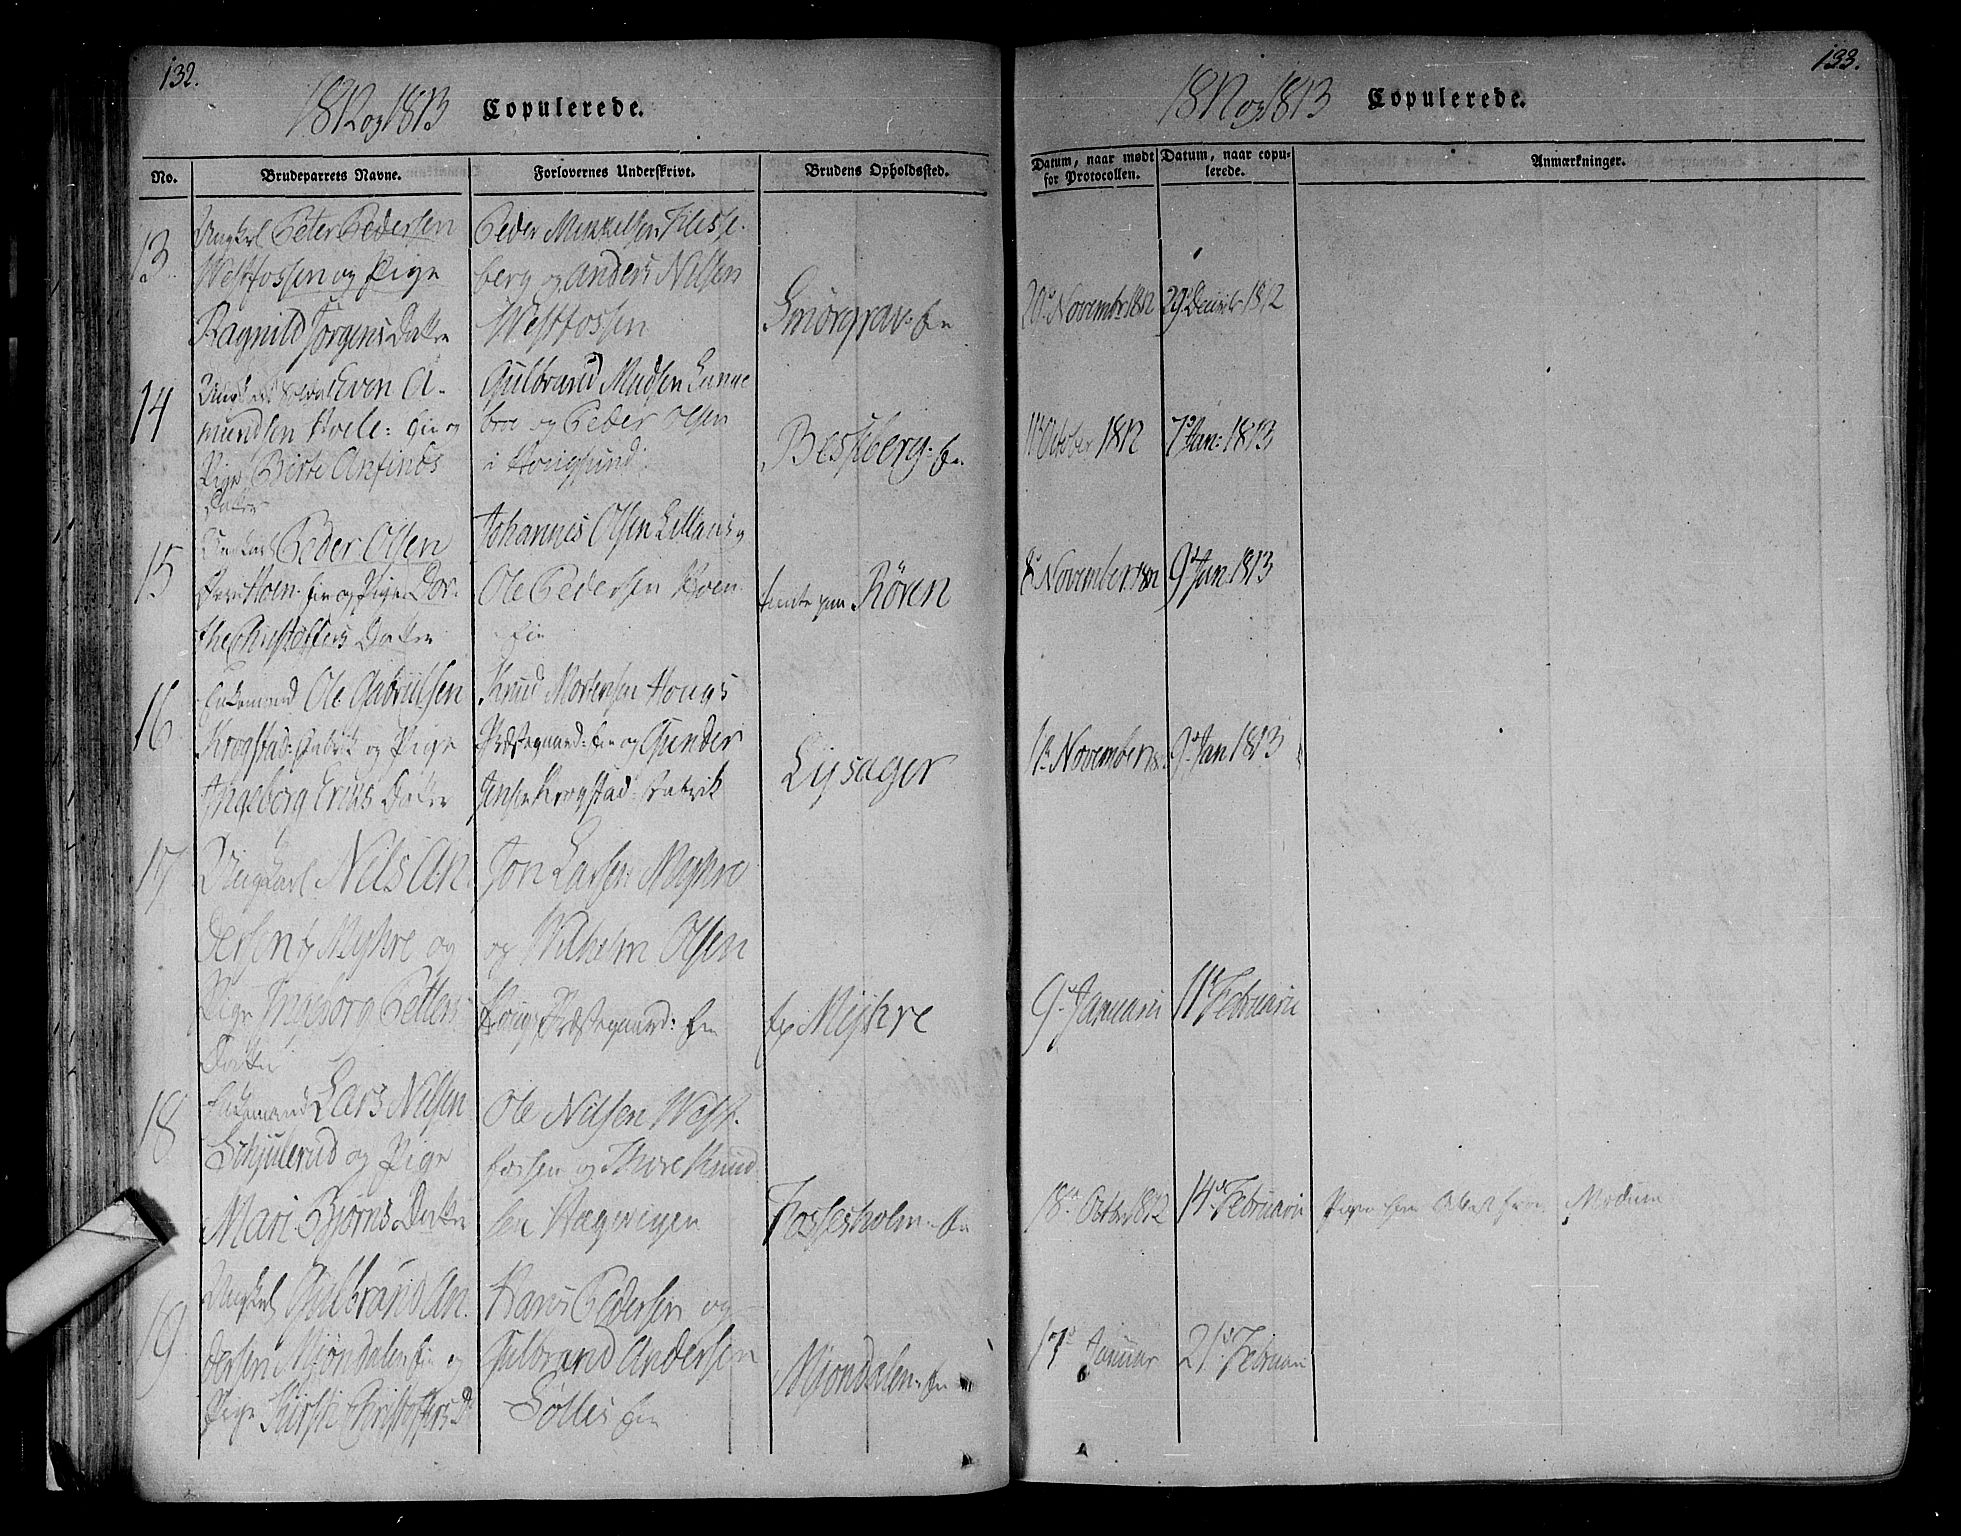 132.
1812 og 1813 Copulerede.
No. Brudeparrets Navne. Forlovernes Underskrivt. Brudens Opholdssted.
13. Ungkarl Peter Pedersen
Westfossen og Pige
Ragnild Jørgens Datter
Peder Mikkelsen
berg og Anders Nilsen
Westfossen
Smørgrav
14 Even A-
mundsen Hoele: og
Pige Birte Anfinds
Datter
Gulbrand Madsen Lange
broe og Peder Olsen
i Hougsund
Besseberg
15 Peder Olsen
Hoen og Pige Dor-
the Christoffers Datter
Johannes Olsen
Ole Pedersen Hoen
Røren
16 Enkemand Ole Gabrielsen
Krogstad Fabrik og Pige
Ingeborg Erics Datter
Knud Mortensen Hougs
Præstegaard og Gunder
Jensen Krogstad Fabrik
Lysager
17 Ungkarl Nils An-
dersen Myhre og
Pige Ingeborg Petters
Datter
Jon Larsen Myhre
og Wilhelm Olsen
Houg Præstegaard
Myhre
18 Enkemand Lars Nilsen
Schjulerud og Pige
Mari Bjørns Datter
Ole Nilsen West-
fossen og Thore Knud
sen Hagevigen
Fossesholm
19 Ungkarl Gulbrand An-
dersen Mjøndalen og
Pige Kirsti Christoffers D
Hans Pedersen og
Gulbrand Andersen
Mjøndalen
133.
1812 og 1813 Copulerede.
Datum, naar mødt for Protocollen. Datum, naar copu-lerede. Anmærkninger.
20d November 1812 29d Decbr 1812
October 1812 7d Jan: 1813
8d November 1812 9d Jan 1813
November 9d Jan 1813
9d Januarii 11d Februarii
18d October 1812 14d Februarii Modum
Januar 21d Februari